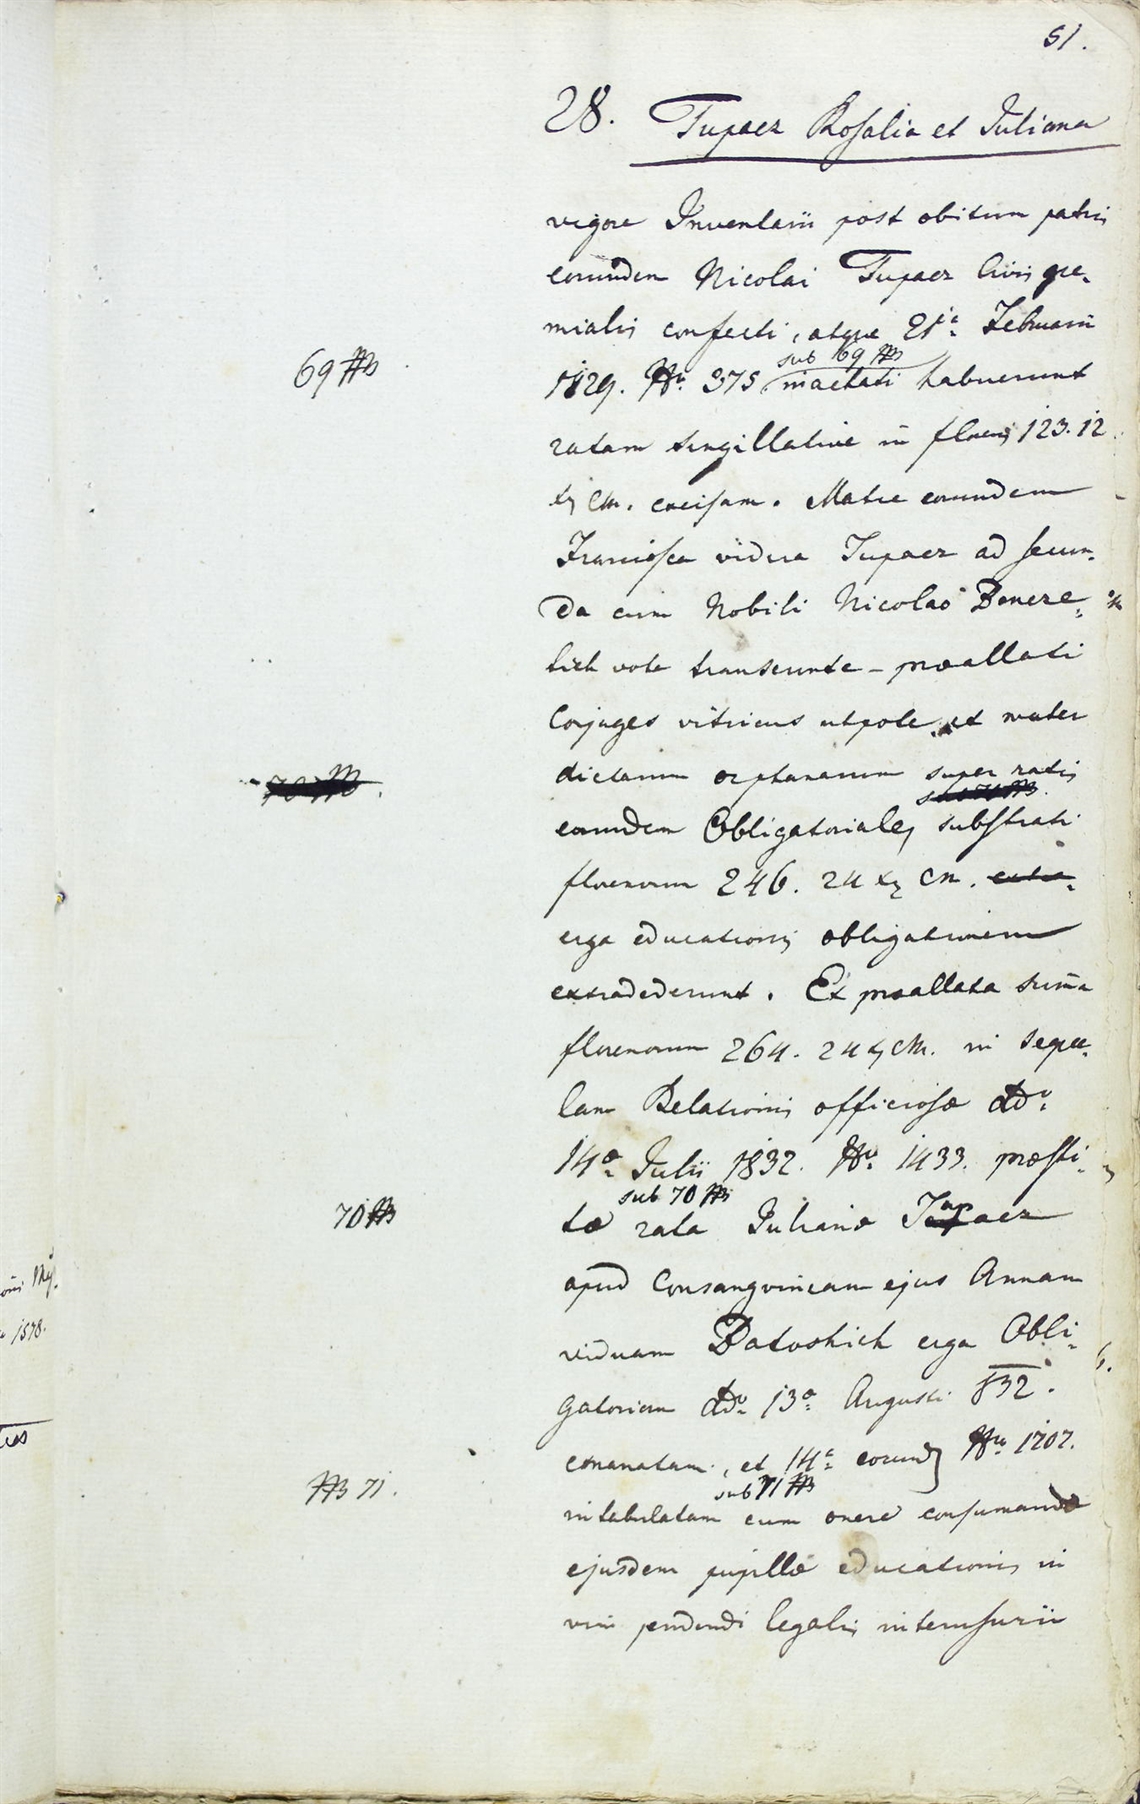 51.
28. Tupacz Rosalia et Juliana
vigore Inventarii post obitum patris
earumdem Nicolai Tupacz Civis gre-
mialis confecti, atque 21a Februarii
69 sub 69
1829. No 375 mactati habuerunt
ratam singillative in florenis 123. 12
xr CM. excisam. Matre earumdem
Francisca vidua Tupacz ad secun-
da cum Nobili Nicolao
vota transeunte – praeallati
Conjuges vitricus utpote et mater
dictarum orphanarum super ratis
earumdem Obligatoriales substrati
florenorum 246. 24 xr CM.
erga educationis obligationem
extradederunt. Ex praeallata summa
florenorum 264. 24 xr CM. in seque-
lam Relationis officiosae ddo
14a Julii 1832. No 1433. praesti-
70 sub 70
tae rata Julianae Tupacz
apud Consangvineam ejus Annam
viduam Batoshich erga Obli-
gatoriam ddo 13a Augusti 832.
emanatam, et 14a eorund No 1707.
71. sub 71
intabulatam cum onere consumandae
ejusdem pupillae educationis in
vim pendendi legalis interusurii
1578.